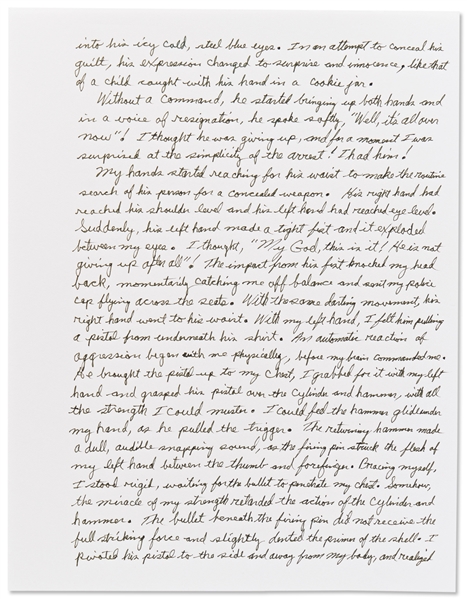 into his icy cold, steel blue eyes. In an attempt to conceal his
guilt, his expression changed to surprise and innocence, like that
of a child caught with his hand in a cookie jar.
Without a command, he started bringing up both hands and
in a voice of resignation, he spoke softly, "Well, it's all over
now"! I thought he was giving up, and for a moment I was
surprised at the simplicity of the arrest! I had him!
My hands started reaching for his waist to make the routine
search of his person for a concealed weapon. His right hand had
reached his shoulder level and his left hand had reached eye level.
Suddenly, his left hand made a tight fist and it exploded
between my eyes. I thought, "My God, this is it! He is not
giving up after all"! The impact from his fist knocked my head
back, momentarily catching me off balance and sent my police
cap flying across the seats. With the same darting movement, his
right hand went to his waist. With my left hand, I felt him pulling
a pistol from underneath his shirt. An automatic reaction of
aggression began with me physically, before my brain commanded me.
He brought the pistol up to my chest, I grabbed for it with my left
hand and grasped his pistol over the cylinder and hammer, with all
the strength I could muster. I could feel the hammer glide under
my hand, as he pulled the trigger. The returning hammer made
a dull, audible snapping sound, as the firing pin struck the flesh of
my left hand between the thumb and forefinger. Bracing myself,
I stood rigid, waiting for the bullet to penetrate my chest. Somehow,
the miracle of my strength retarded the action of the cylinder and
hammer. The bullet beneath the firing pin did not receive the
full striking force and slightly dented the primer of the shell. I
pivoted his pistol to the side and away from my body, and realized